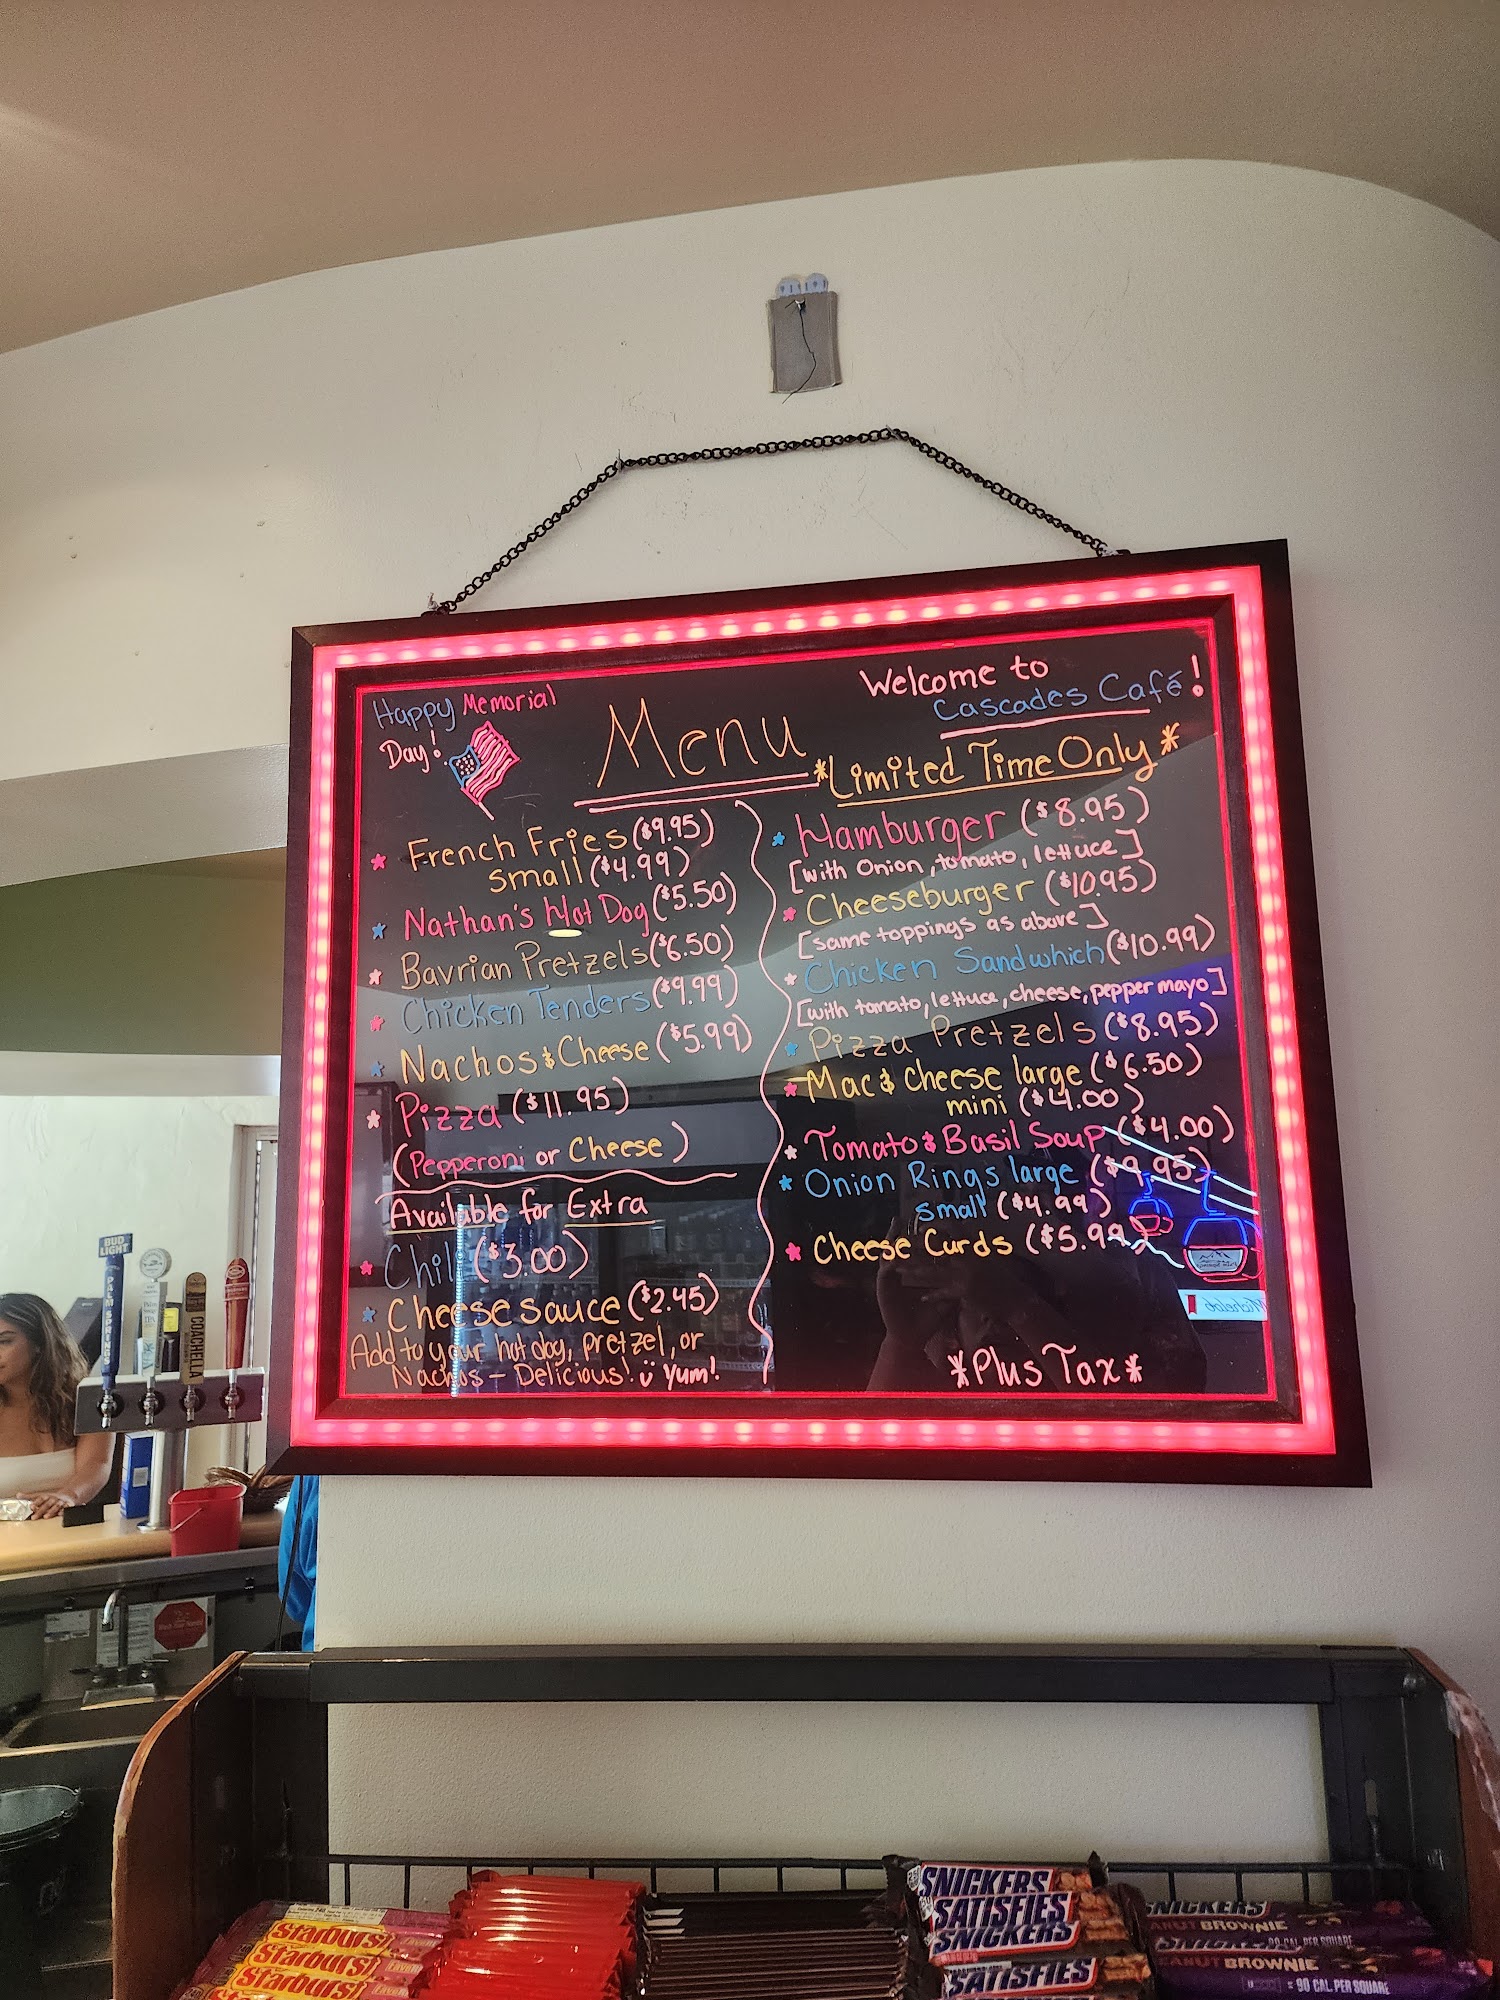 Happy Memorial
Day!
Menu
Welcome to
Cascades Café!
*Limited Time Only*
French Fries ($9.95)
small ($4.99)
Nathan's Hot Dog ($5.50)
Bavrian Pretzels ($6.50)
Chicken Tenders ($9.99)
Nachos & Cheese ($5.99)
Pizza ($11.95)
(Pepperoni or Cheese)
Available for Extra
Chili ($3.00)
Cheese sauce ($2.45)
Add to your hot dog, pretzel, or
Nachos - Delicious! Yum!
Hamburger ($8.95)
[with onion, tomato, lettuce]
Cheeseburger ($10.95)
[same toppings as above]
Chicken Sandwhich ($10.99)
[with tomato, lettuce, cheese, pepper mayo]
Pizza Pretzels ($8.95)
Mac & cheese large ($6.50)
mini ($4.00)
Tomato & Basil Soup ($4.00)
Onion Rings large ($9.95)
small ($4.99)
Cheese Curds ($5.99)
*Plus Tax*
BUD
LIGHT
PALM SPRINGS
COACHELLA
Starburst
Starburst
Starburst
SNICKERS
SATISFIES
SNICKERS
SATISFIES
SNICKERS
BROWNIE
SNICKERS
BROWNIE
90 CAL. PER SQUARE